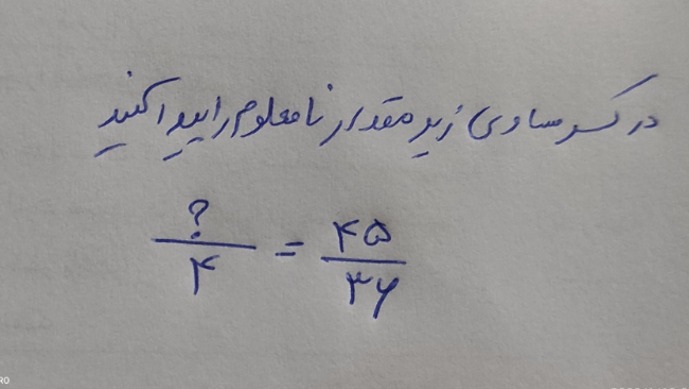 در کسر مساوی زیر مقدار نامعلوم را پیدا کنید
؟/۴ = ۴۵/۳۶